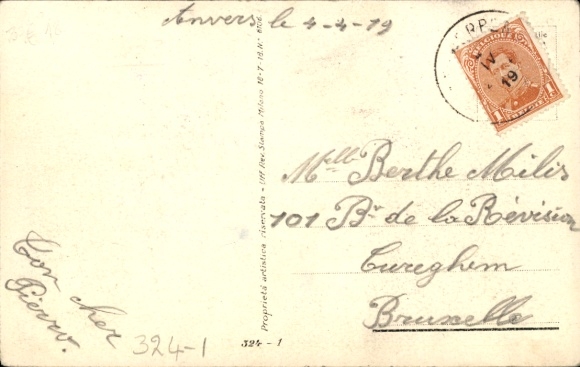 Anvers le 4-4-19
BELGIQUE
IV
19
1 BELGIE 1
Mlle Berthe Milis
101 Bd de la Révision
Cureghem
Bruxelle
Ton cher
Pierro.
324-1
Proprietà artistica riservata - Uff. Rev. Stampa Milano 16-7-18. N.
324 - 1